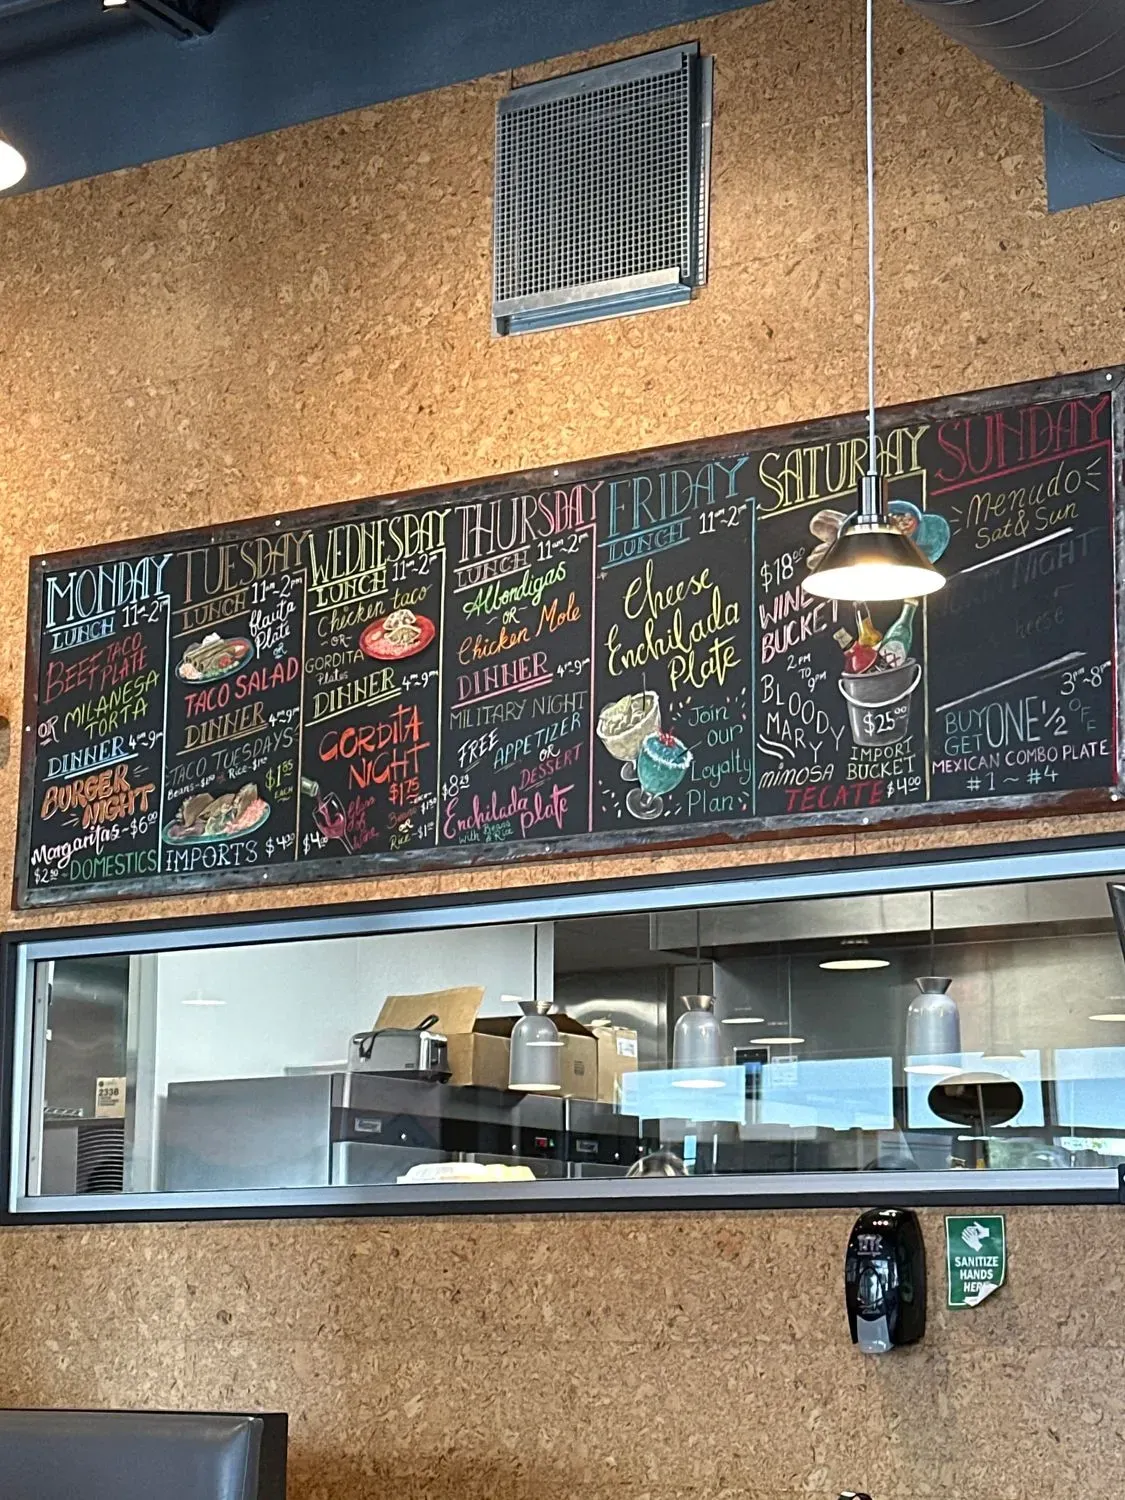 MONDAY
LUNCH 11am-2pm
BEEF TACO
PLATE
OR MILANESA
TORTA
DINNER 4pm-9pm
BURGER
NIGHT
Margaritas-$6.00
$2.50 DOMESTICS
TUESDAY
LUNCH 11am-2pm
Flauta
Plate
OR
TACO SALAD
DINNER 4pm-9pm
TACO TUESDAYS
$1.85
EACH
IMPORTS $4.00
WEDNESDAY
LUNCH 11am-2pm
Chicken taco
-OR-
GORDITA
Plates
DINNER 4pm-9pm
GORDITA
NIGHT
$1.75
OR
THURSDAY
LUNCH 11am-2pm
Albondigas
-OR-
Chicken Mole
DINNER 4pm-9pm
MILITARY NIGHT
FREE APPETIZER
OR
DESSERT
$8.29
Enchilada plate
with Beans
& Rice
FRIDAY
LUNCH 11am-2pm
Cheese
Enchilada
Plate
Join
our
Loyalty
Plan
SATURDAY
$18.00
WINE
BUCKET
2PM
TO
9PM
BLOODY
MARY
MIMOSA
$25.00
IMPORT
BUCKET
TECATE $4.00
SUNDAY
Menudo
Sat & Sun
NIGHT
3pm-8pm
BUY ONE 1/2 OFF
GET
MEXICAN COMBO PLATE
#1 ~ #4
2338
SANITIZE
HANDS
HERE